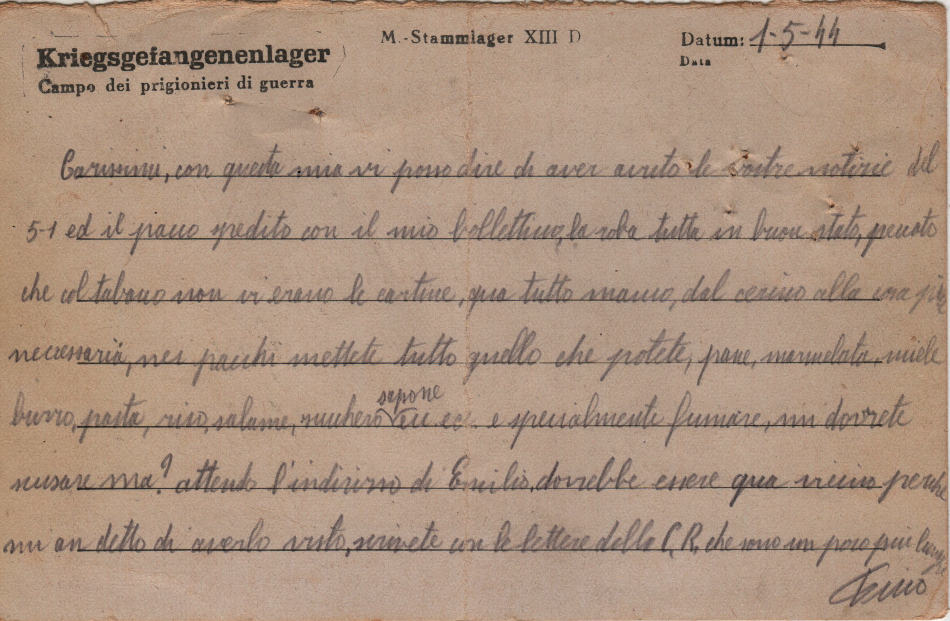 M.-Stammlager XIII D
Datum: 1-5-44
Data
Kriegsgefangenenlager
Campo dei prigionieri di guerra
Carissimi, con questa mia vi posso dire di aver avuto le vostre notizie del
5-1 ed il pacco spedito con il mio bollettino, la roba tutta in buon stato, peccato
che col tabacco non vi erano le cartine, qua tutto manca, dal cerino alla cosa più
necessaria, nei pacchi mettete tutto quello che potete, pane, marmelata, miele
burro, pasta, riso, salame, zucchero sapone ecc ec. e specialmente fumare, mi dovrete
scusare ma? attendo l'indirizzo di Emilio, dovrebbe essere qua vicino perchè
mi an detto di averlo visto, scrivete con le lettere della C.R. che sono un poco più lunghe